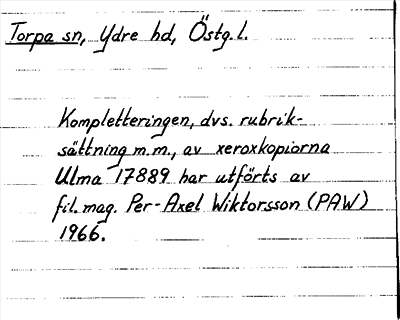 Torpa sn, Ydre hd, Östg.l.
Kompletteringen, dvs. rubrik-
sättning m.m., av xeroxkopiorna
Ulma 17889 har utförts av
fil.mag. Per-Axel Wiktorsson (PAW)
1966.